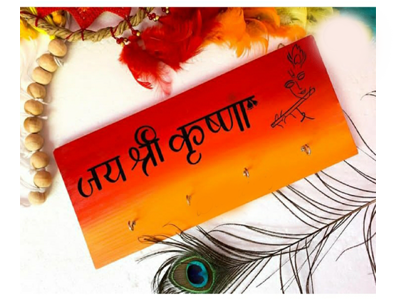 जय श्री कृष्णा